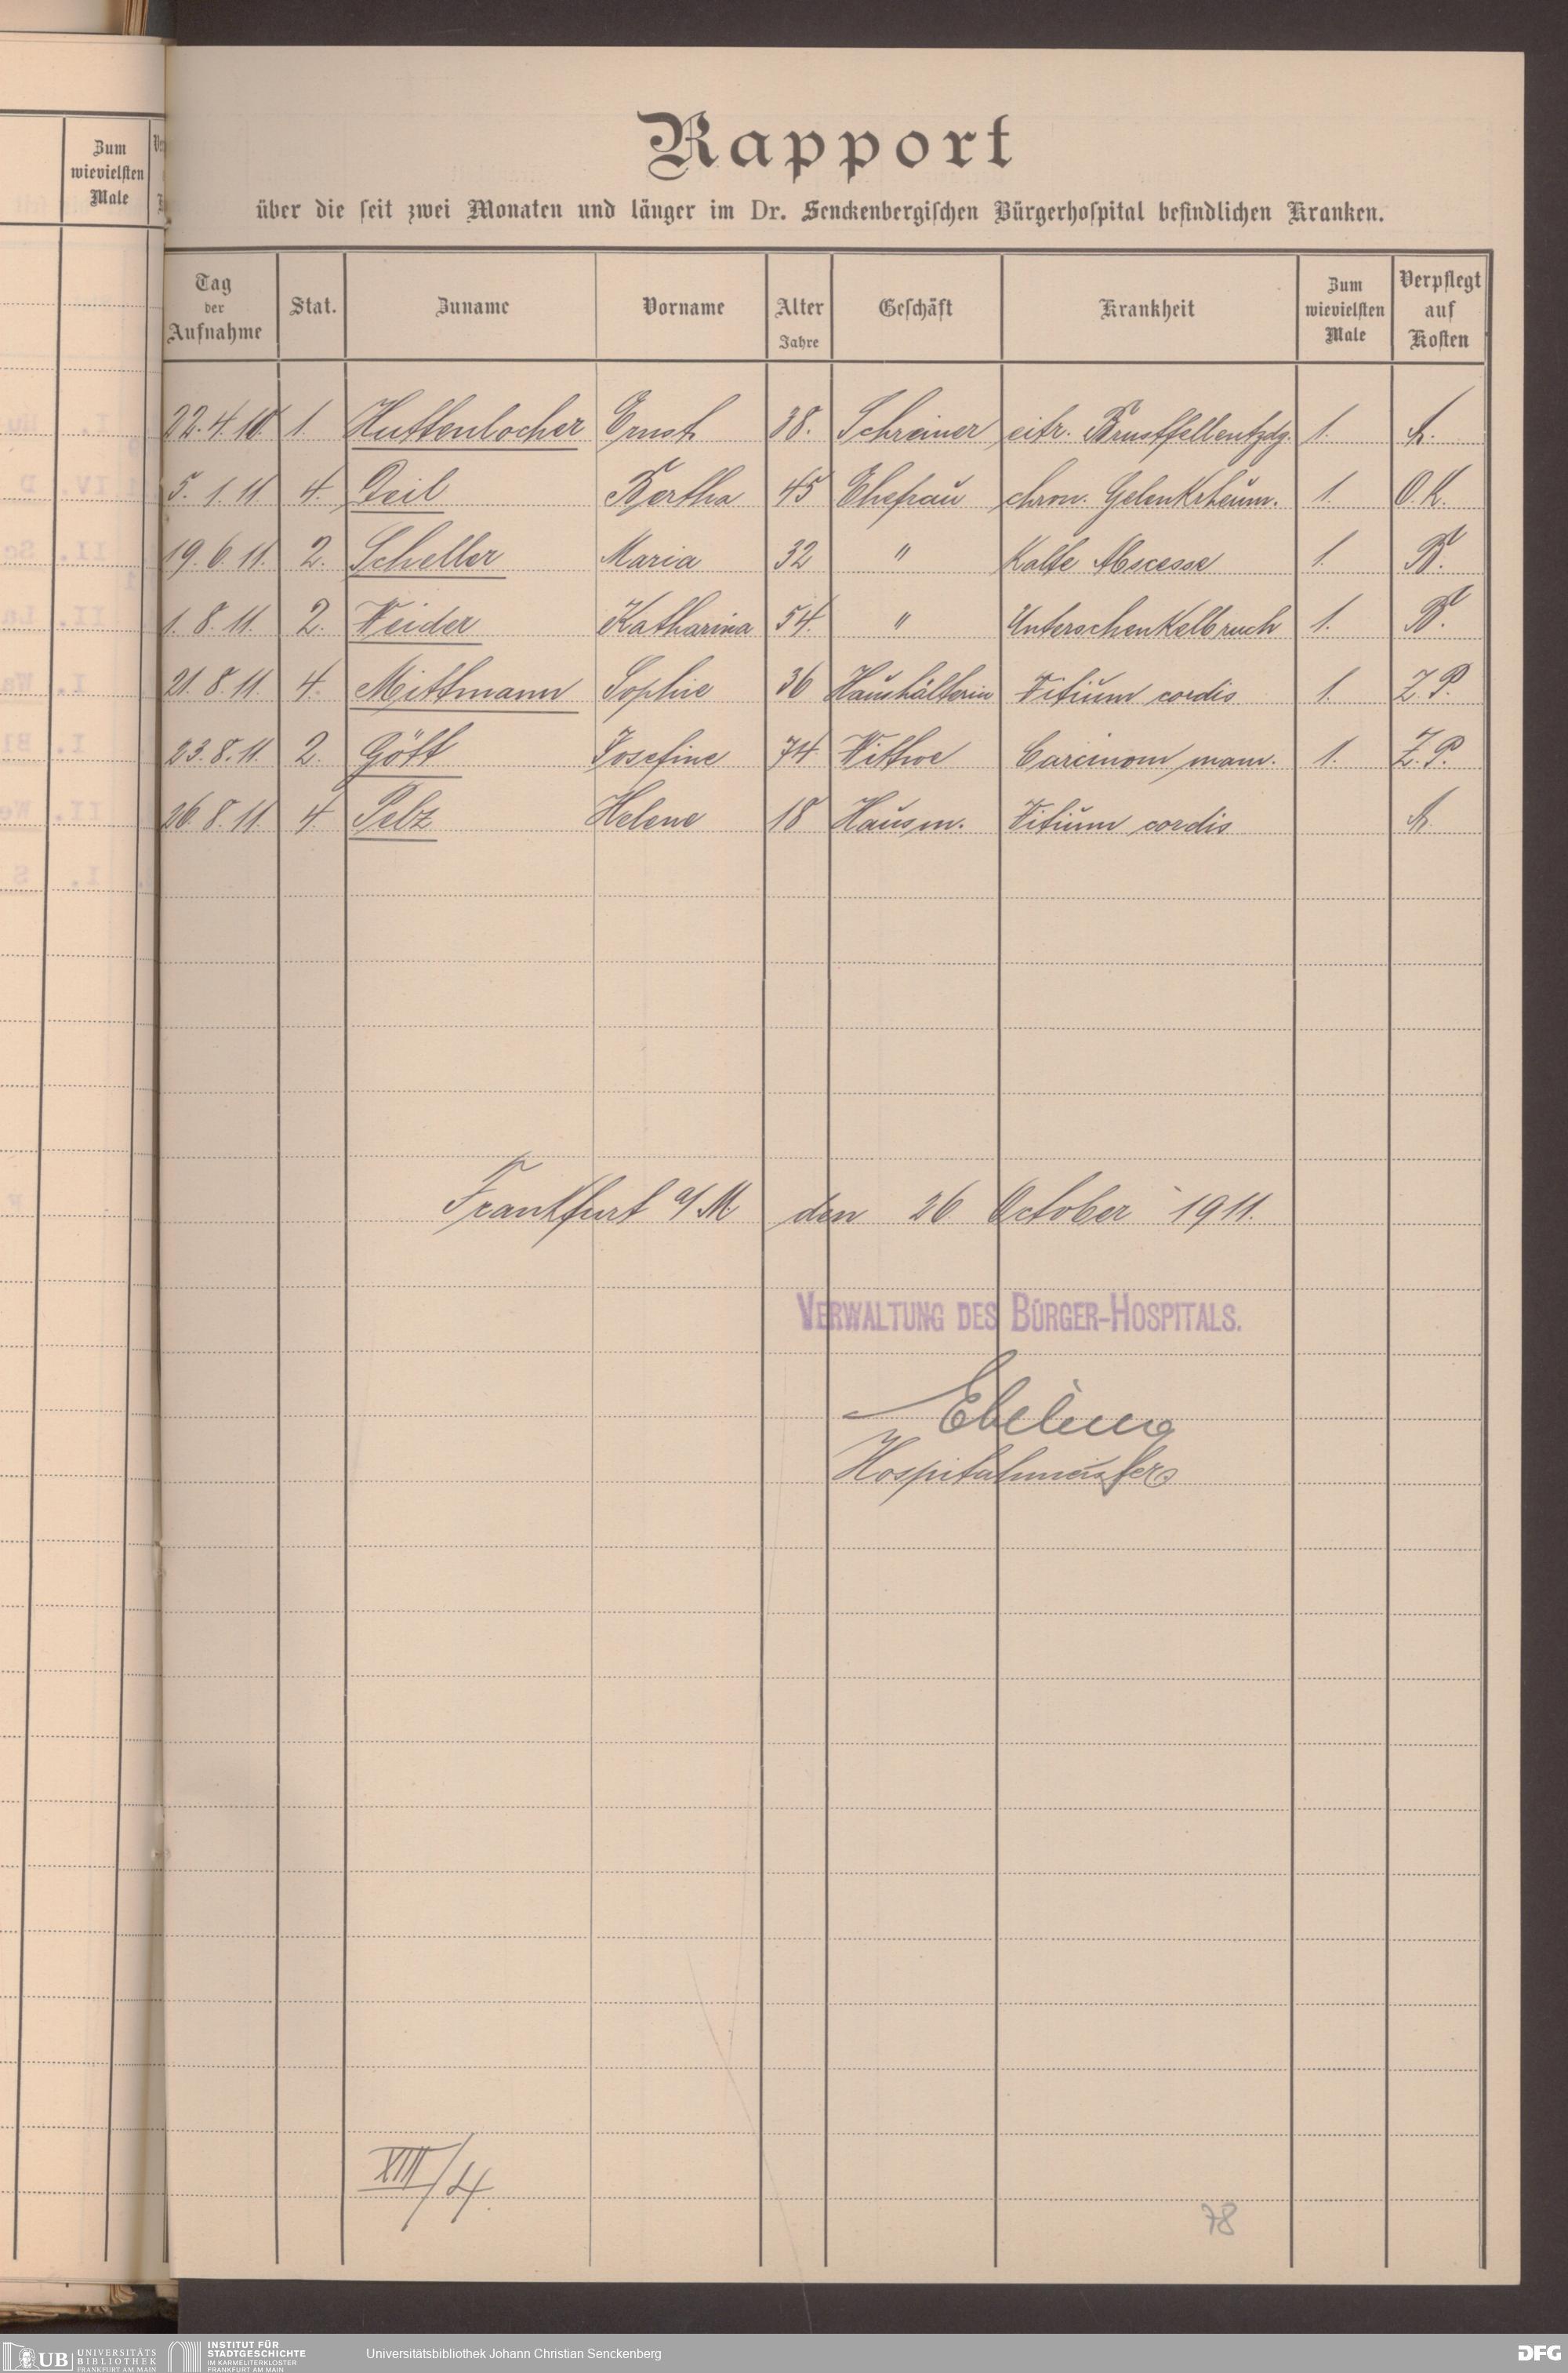 Zum
wievielsten
Male
Rapport
über die seit zwei Monaten und länger im Dr. Senckenbergischen Bürgerhospital befindlichen Kranken.
Tag der Aufnahme Stat. Zuname Vorname Alter Jahre Geschäft Krankheit Zum wievielsten Male Verpflegt auf Kosten
22. 4. 10 1. Huttenlocher Ernst 38. Schreiner eitr. Brustfellentzdg. 1.
5. 1. 11. 4. Deil Bertha 45 Ehefrau chron. Gelenkrheum. 1. O.K.
19. 6. 11. 2. Scheller Maria 32 " Kalte Abscesse 1. B.
1. 8. 11. 2. Weider Katharina 54. " Unterschenkelbruch 1. B.
21. 8. 11. 4. Mittmann Sophie 36 Haushälterin Vitium cordis 1. Z. P.
23. 8. 11. 2. Gött Josefine 74 Wittwe Carcinom mam. 1. Z. P.
26 8. 11. 4. Pelz Helene 18 Hausm. Vitium cordis
Frankfurt a/M den 26 October 1911.
VERWALTUNG DES BÜRGER-HOSPITALS.
Ebeling
Hospitalmeister
XIII/4.
78
UB UNIVERSITÄTS BIBLIOTHEK FRANKFURT AM MAIN
INSTITUT FÜR STADTGESCHICHTE IM KARMELITERKLOSTER FRANKFURT AM MAIN
Universitätsbibliothek Johann Christian Senckenberg
DFG